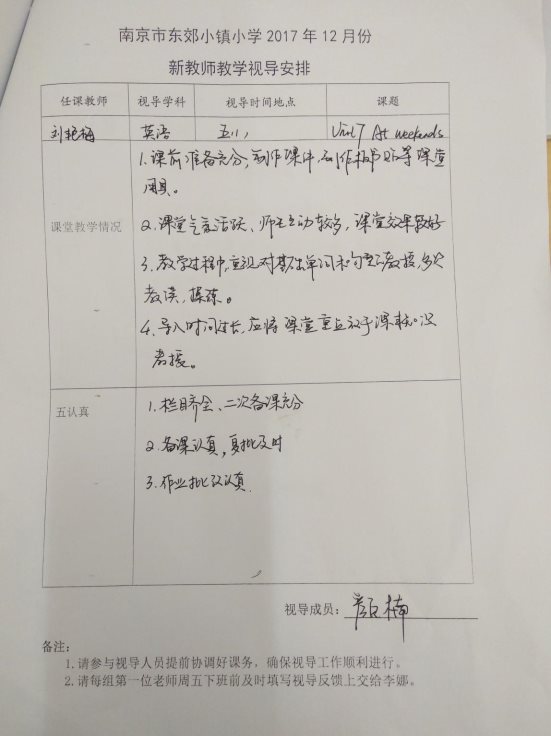 南京市东郊小镇小学 2017 年 12 月份
新教师教学视导安排
任课教师 视导学科 视导时间地点 课题
刘艳梅 英语 五1 Unit 7 At weekends
课堂教学情况
1.课前准备充分,制作课件,制作板书贴等课堂
用具。
2.课堂气氛活跃、师生互动较多,课堂效果较好
3.教学过程中,重视对基础单词和句型的教授,多次
教读,操练。
4.导入时间过长,应将课堂重点放于课标知识
教授。
五认真
1.栏目齐全、二次备课充分
2.备课认真,复批及时
3.作业批改认真.
视导成员:颜楠
备注:
1.请参与视导人员提前协调好课务,确保视导工作顺利进行。
2.请每组第一位老师周五下班前及时填写视导反馈上交给李娜。